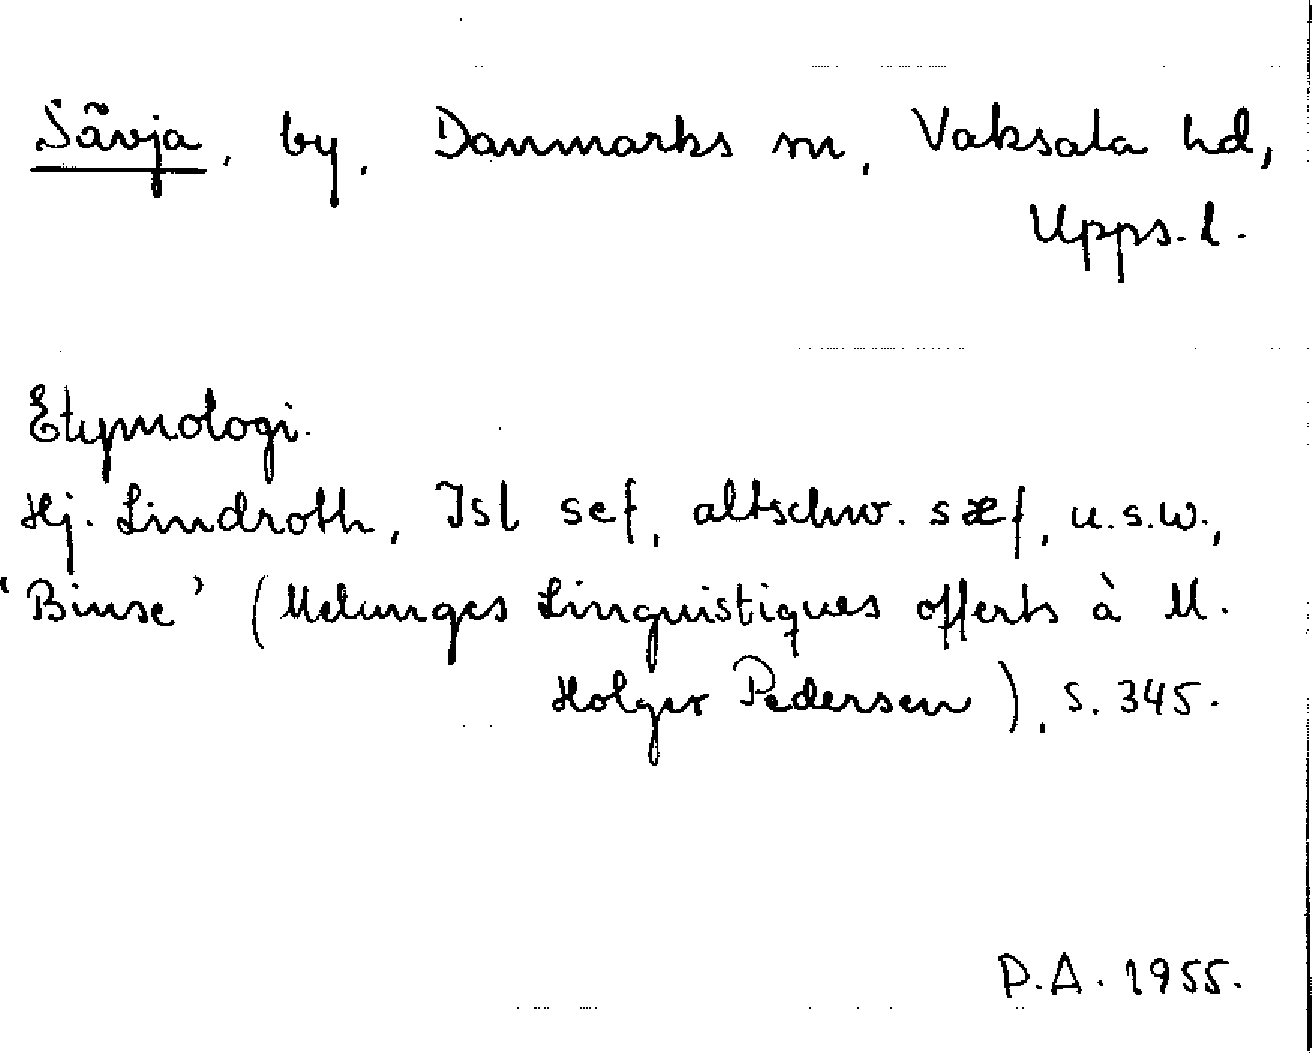 Sävja, by, Danmarks sn, Vaksala hd,
Upps. l.
Etymologi.
Hj. Lindroth, Isl sef, altschw. sæf, u.s.w.,
'Binse' (Melunges Linguistiques offerts à M.
Holger Pedersen), s. 345.
P.A. 1955.